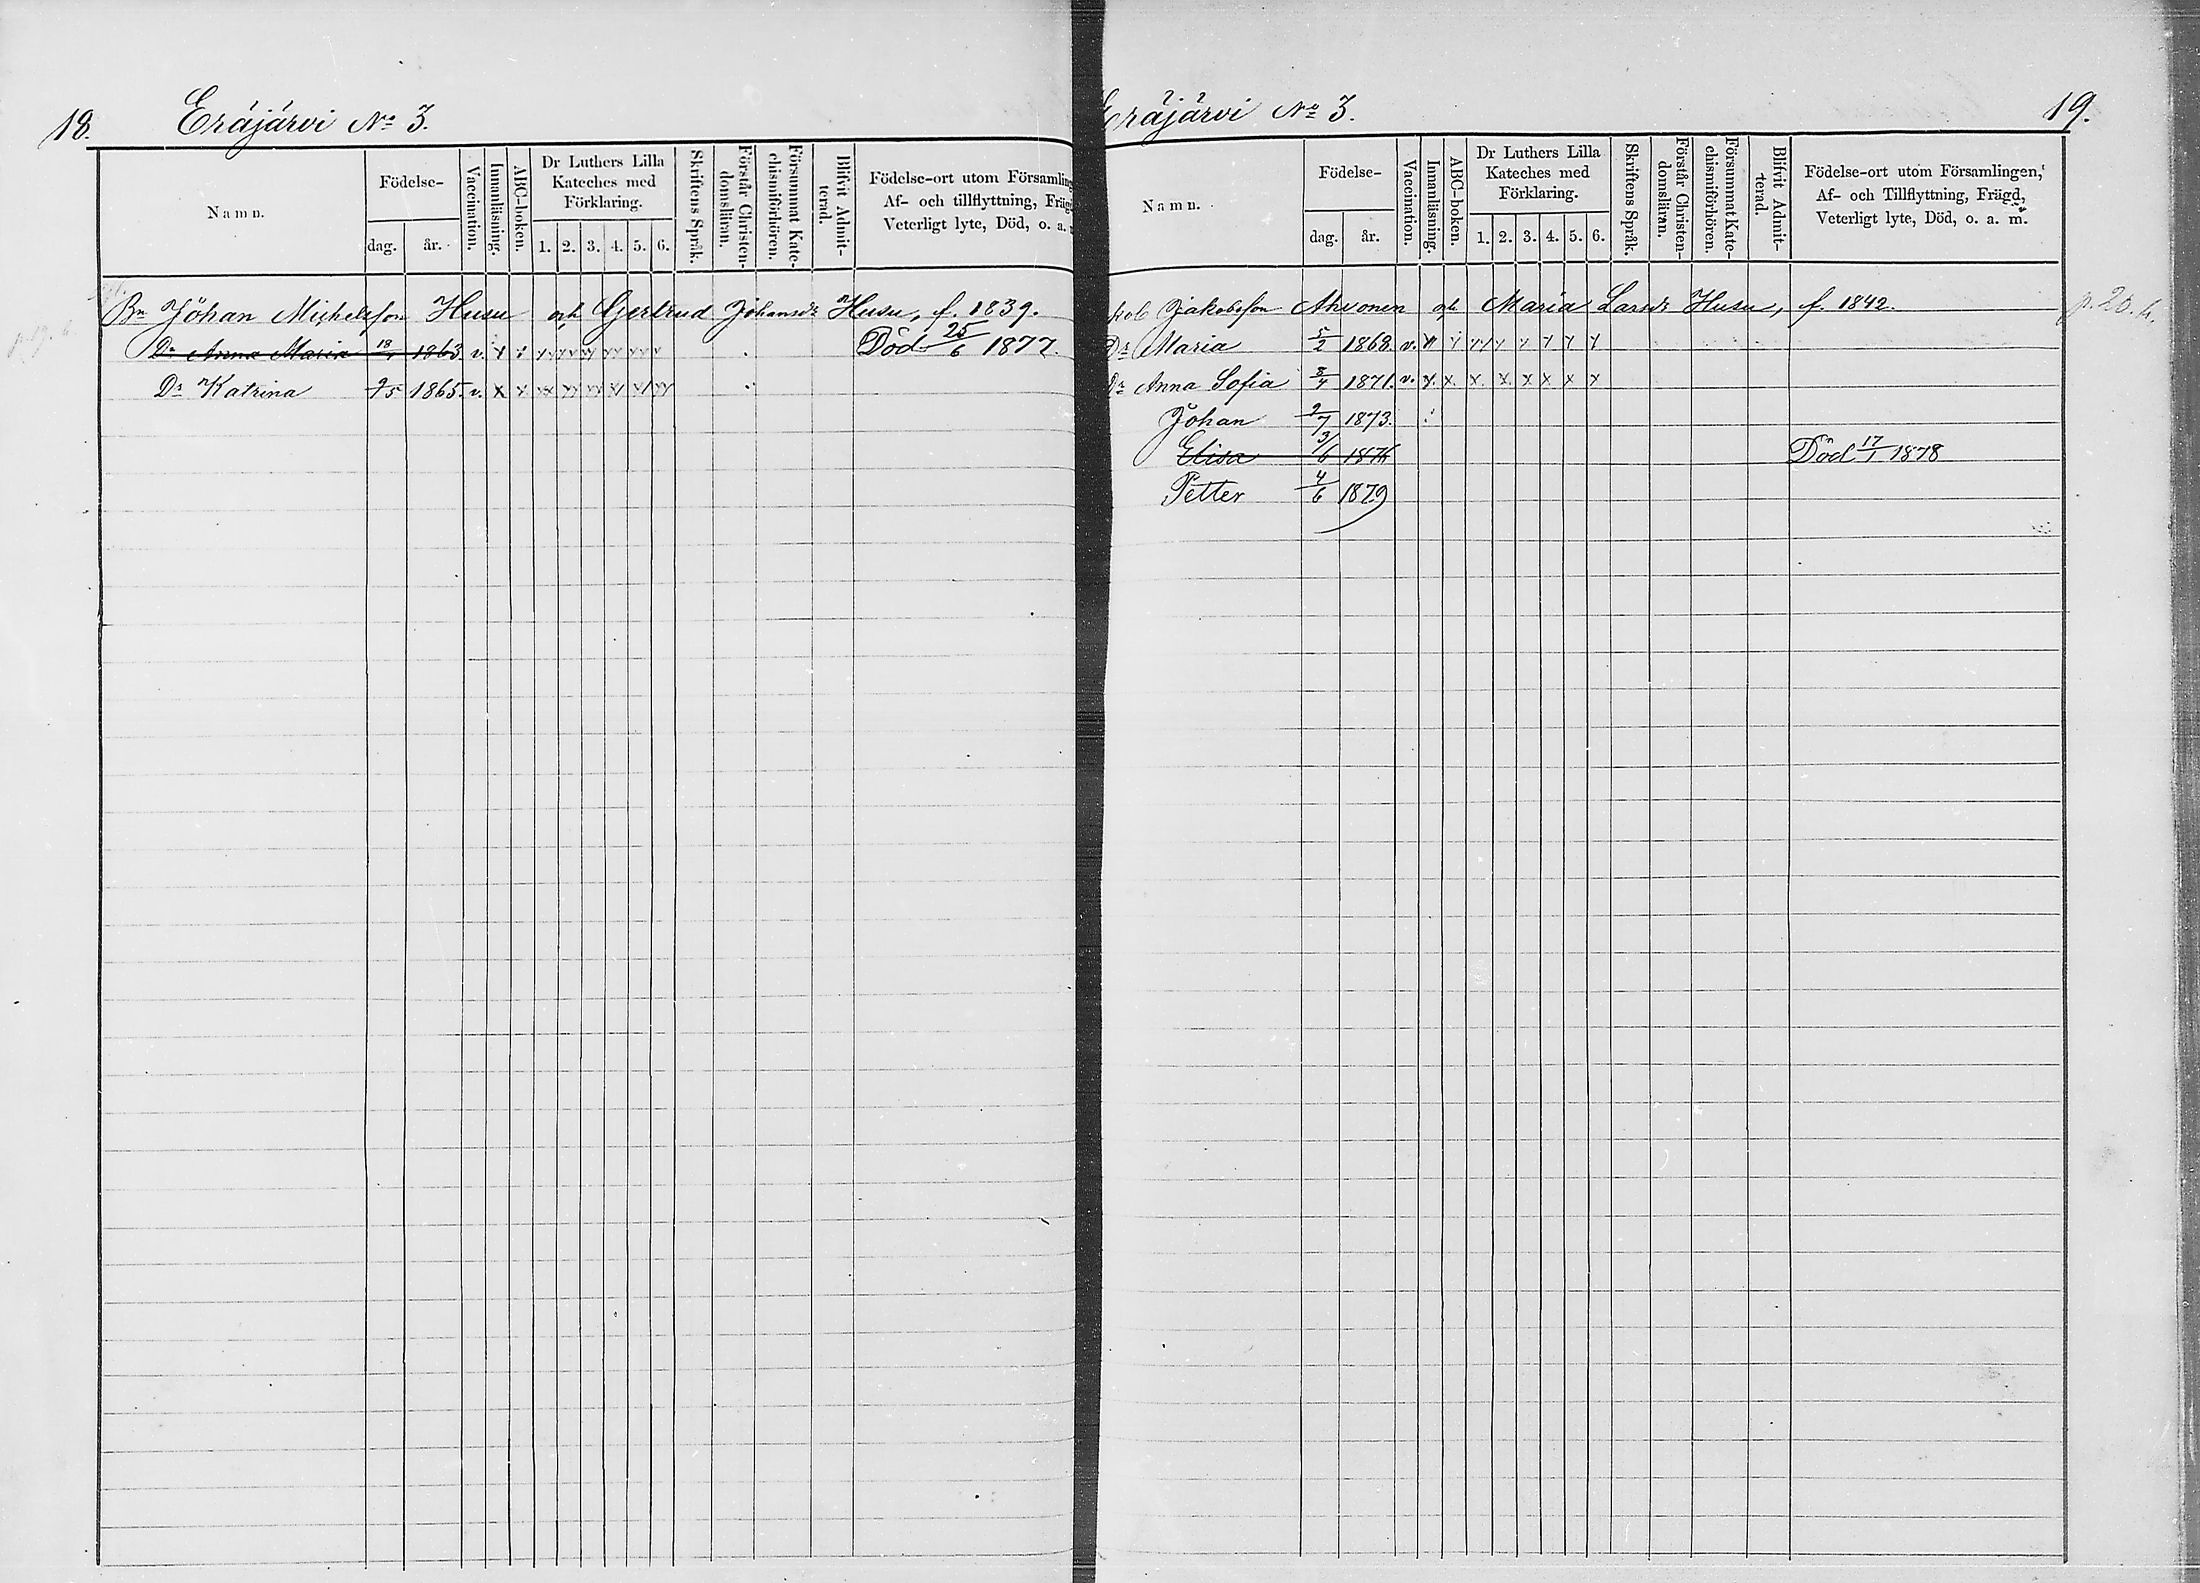 18.
Eräjärvi No 3.
Namn.
Födelse-
dag. år.
Vaccination.
Innanläsning.
ABC-boken.
Dr Luthers Lilla
Kateches med
Förklaring.
1. 2. 3. 4. 5. 6.
Skriftens Språk.
Förstår Christen-
domsläran.
Försummat Kate-
chismiförhören.
Blifvit Admit-
terad.
Födelse-ort utom Församling
Af- och tillflyttning, Fräg
Veterligt lyte, Död, o. a.
Bn Johan Michelsson Husu och Gertrud Johansdr Husu, f. 1839.
Dr Anna Maria 1863 v. x x Död 25/6 1877.
Dr Katrina 1865. v. x x
äräjärvi No 3.
19.
Namn.
Födelse-
dag. år.
Vaccination.
Innanläsning.
ABC-boken.
Dr Luthers Lilla
Kateches med
Förklaring.
1. 2. 3. 4. 5. 6.
Skriftens Språk.
Förstår Christen-
domsläran.
Försummat Kate-
chismiförhören.
Blifvit Admit-
terad.
Födelse-ort utom Församlingen,
Af- och Tillflyttning, Frägd,
Veterligt lyte, Död, o. a. m.
kob Jakobsson Ahvonen och Maria Larsdr Husu, f. 1842.
p. 20. h.
Dr Maria 5/2 1868. v.
Dr Anna Sofia 8/4 1871. v. x. x. x. x. x x x x
Johan 9/7 1873.
Elisa 3/6 1876 Död 17/1 1878
Petter 4/6 1879